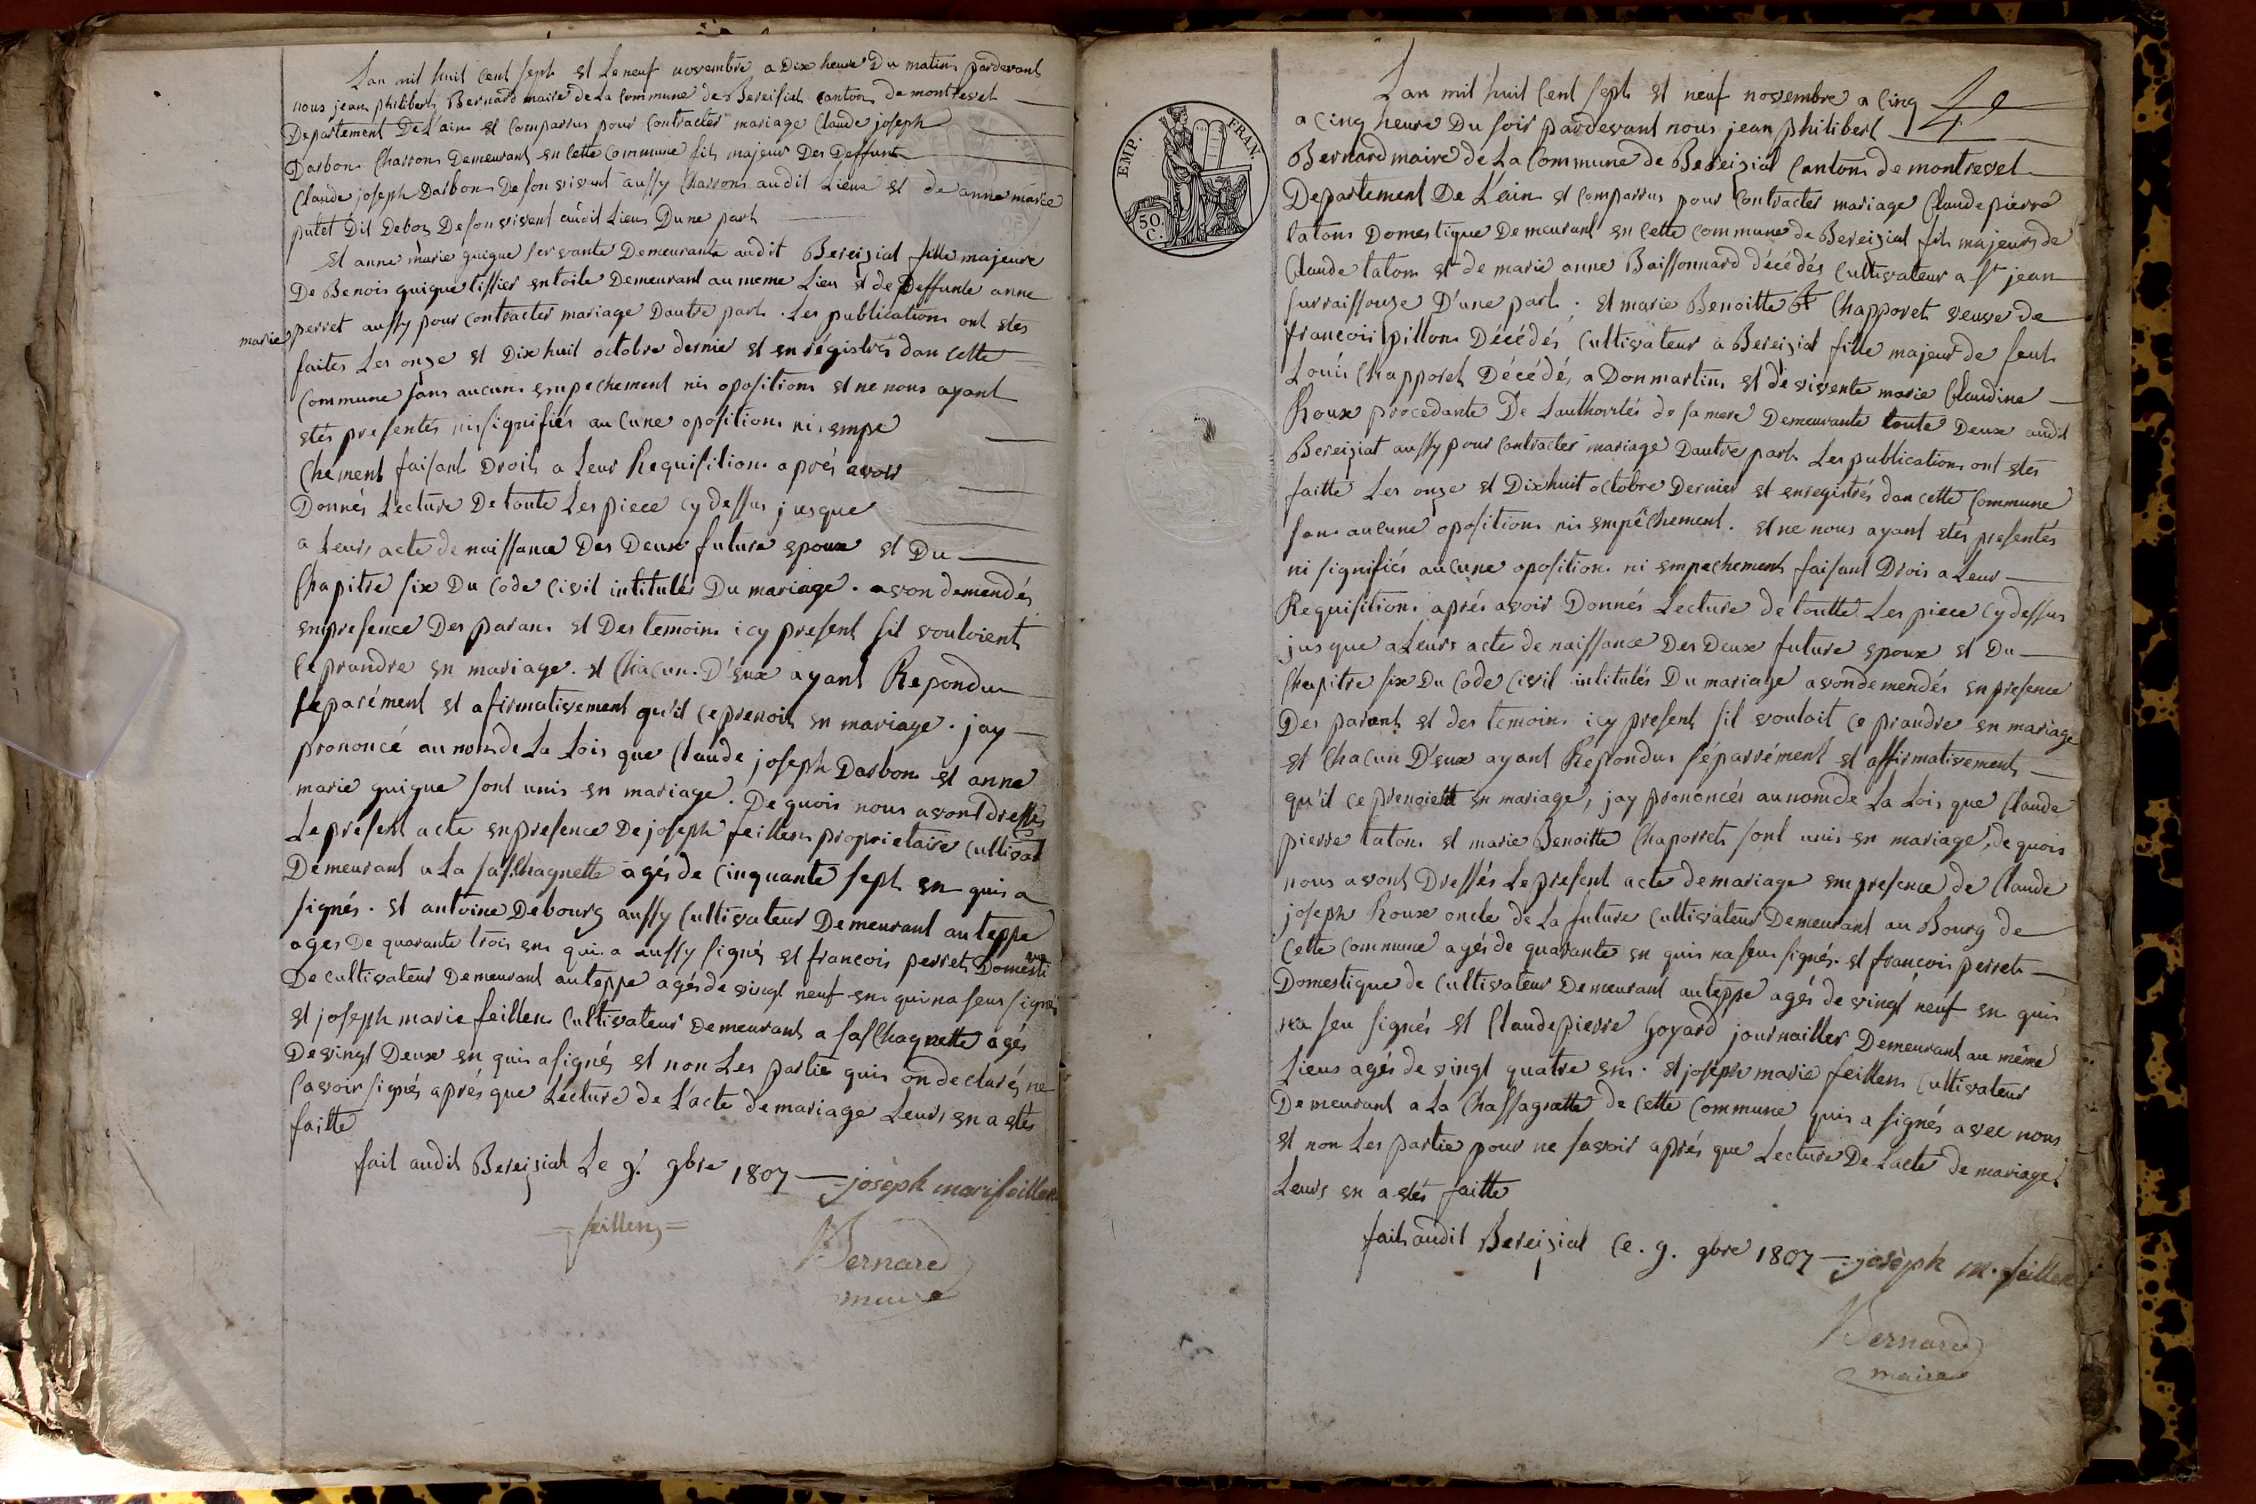 Lan mil huit Cent Sept et Le neuf novembre a Dix heure Du matin pardevant
nous jean philibert Bernard maire de La Commune de Bereisiat canton de montrevel
Departement De L'ain et Comparrus pour Contracter mariage Claude joseph
Darbon Charron Demeurant en Cette Commune fils majeur Des Deffunt
Claude joseph Darbon De son vivent aussy Charron audit Lieux et de anne marie
putet Dit Debos De son vivent audit Lieu Dune part
et anne marie guigue servante Demeurante audit Bereiziat fille majeure
De Benois guigue tissier en toile Demeurant au meme Lieu et de Deffunte anne
marie perret aussy pour Contracter mariage Dautre part. Les publications ont etes
faites Les onze et Dix huit octobre dernie et en régistrés dan Cette
Commune sans aucuns empechement nis oposition et ne nous ayant
etés presentés ni signifiés au Cune oposition ni empe
Chement faisant Droit a Leur Requisition aprés avoir
Donnés Lecture De toute Les piece cy dessus jusque
a Leurs acte de naissance Des Deux future epoux et Du
Chapitre six Du Code Civil intitulés Du mariage. avon demendés
en presence Des paran et Des temoin icy present sil vouloient
Ce prandre en mariage. et Chacun D'eux ayant Repondu
séparément et afirmativement qu'il ce prenoit en mariage. jay
prononcé au nom de La Lois que Claude joseph Darbon et anne
marie guigue sont unis en mariage. De quois nous avont dressés
Le présent acte en presence De joseph feillens proprietaire Cultivat
Demeurant a La Saschagnette agés de Cinquante sept en quis a
signés. et antoine Debourg aussy Cultivateur Demeurant au teppe
ages De quarante trois ens qui a aussy signés et francois perret Domesti
que
De Cultivateur Demeurant au teppe agés de vingt neuf ens qui na seus signés
et joseph marie feillens Cultivateur Demeurant a saschagnette agés
De vingt Deux en quis a signés et non Les partie quis on declarés ne
Savoir signés aprés que Lecture de L'acte de mariage Leurs en a etés
faitte
fait audit Bereiziat Le 9. 9bre 1807 joseph mari feillen
feillens
Bernard
maire
EMP. FRAN.
50 C.
Lan mil huit Cent sept et neuf novembre a Cinq
a Cinq heure Du soir pardevant nous jean philibert
Bernard maire de La Commune de Bereiziat Canton de montrevel
Departement De L'ain et Comparrus pour Contracter mariage Claude pierre
taton Domestique Demeurant en Cette Commune de Bereiziat fils majeurs de
Claude taton et de marie anne Baissonnard décédés Cultivateur a St jean
surraissouze D'une part. et marie Benoitte Chapporet veuve de
francois pillon Décédés Cultivateur a Bereiziat fille majeur de feut
Louis Chapporet Décédé, a Donmartin et de vivente marie Claudine
Roux procedante De Lauthorités de sa mere Demeurante toute Deux audit
Bereiziat aussy pour Contracter mariage Dautre part Les publications ont etes
faitte Les onze et Dix huit octobre Dernier et enregistrés dan cette Commune
san aucune oposition nis empêchement. et ne nous ayant etés presentés
ni signifiés aucune oposition ni empechement faisant Drois a Leur
Requisition aprés avoir Donnés Lecture de toutte Les piece Cy dessus
jusque a Leurs acte de naissance Des Deux future epoux et Du
Chapitre six Du Code Civil intitulés Du mariage avon demendés en presence
Des parant et des temoin icy present sil voulait ce prandre en mariage
et Chacun D'eux ayant Repondu séparrément et affirmativement
qu'il ce prenoiett en mariage, jay prononcés au nom de La Lois que Claude
pierre taton et marie Benoitte Chaporret sont unis en mariage, de quois
nous avont Dressés Le present acte de mariage en presence de Claude
joseph Roux oncle de La future Cultivateur Demeurant au Bourg de
Cette Commune agés de quarante en quis na seus signés. et francois perret
Domestique de Cultivateur Demeurant au teppe agés de vingt neuf en quis
na seu signés et Claude pierre Goyard journailler Demeurant au même
Lieux agés de vingt quatre ens. et joseph marie feillens Cultivateur
Demeurant a La Chassagnette de Cette Commune quis a signés avec nous
et non Les partie pour ne savoir aprés que Lecture De Lacte de mariage
Leurs en a etés faitte
fait audit Bereiziat Ce. 9. 9bre 1807 joseph m. feillen
Bernard
maire